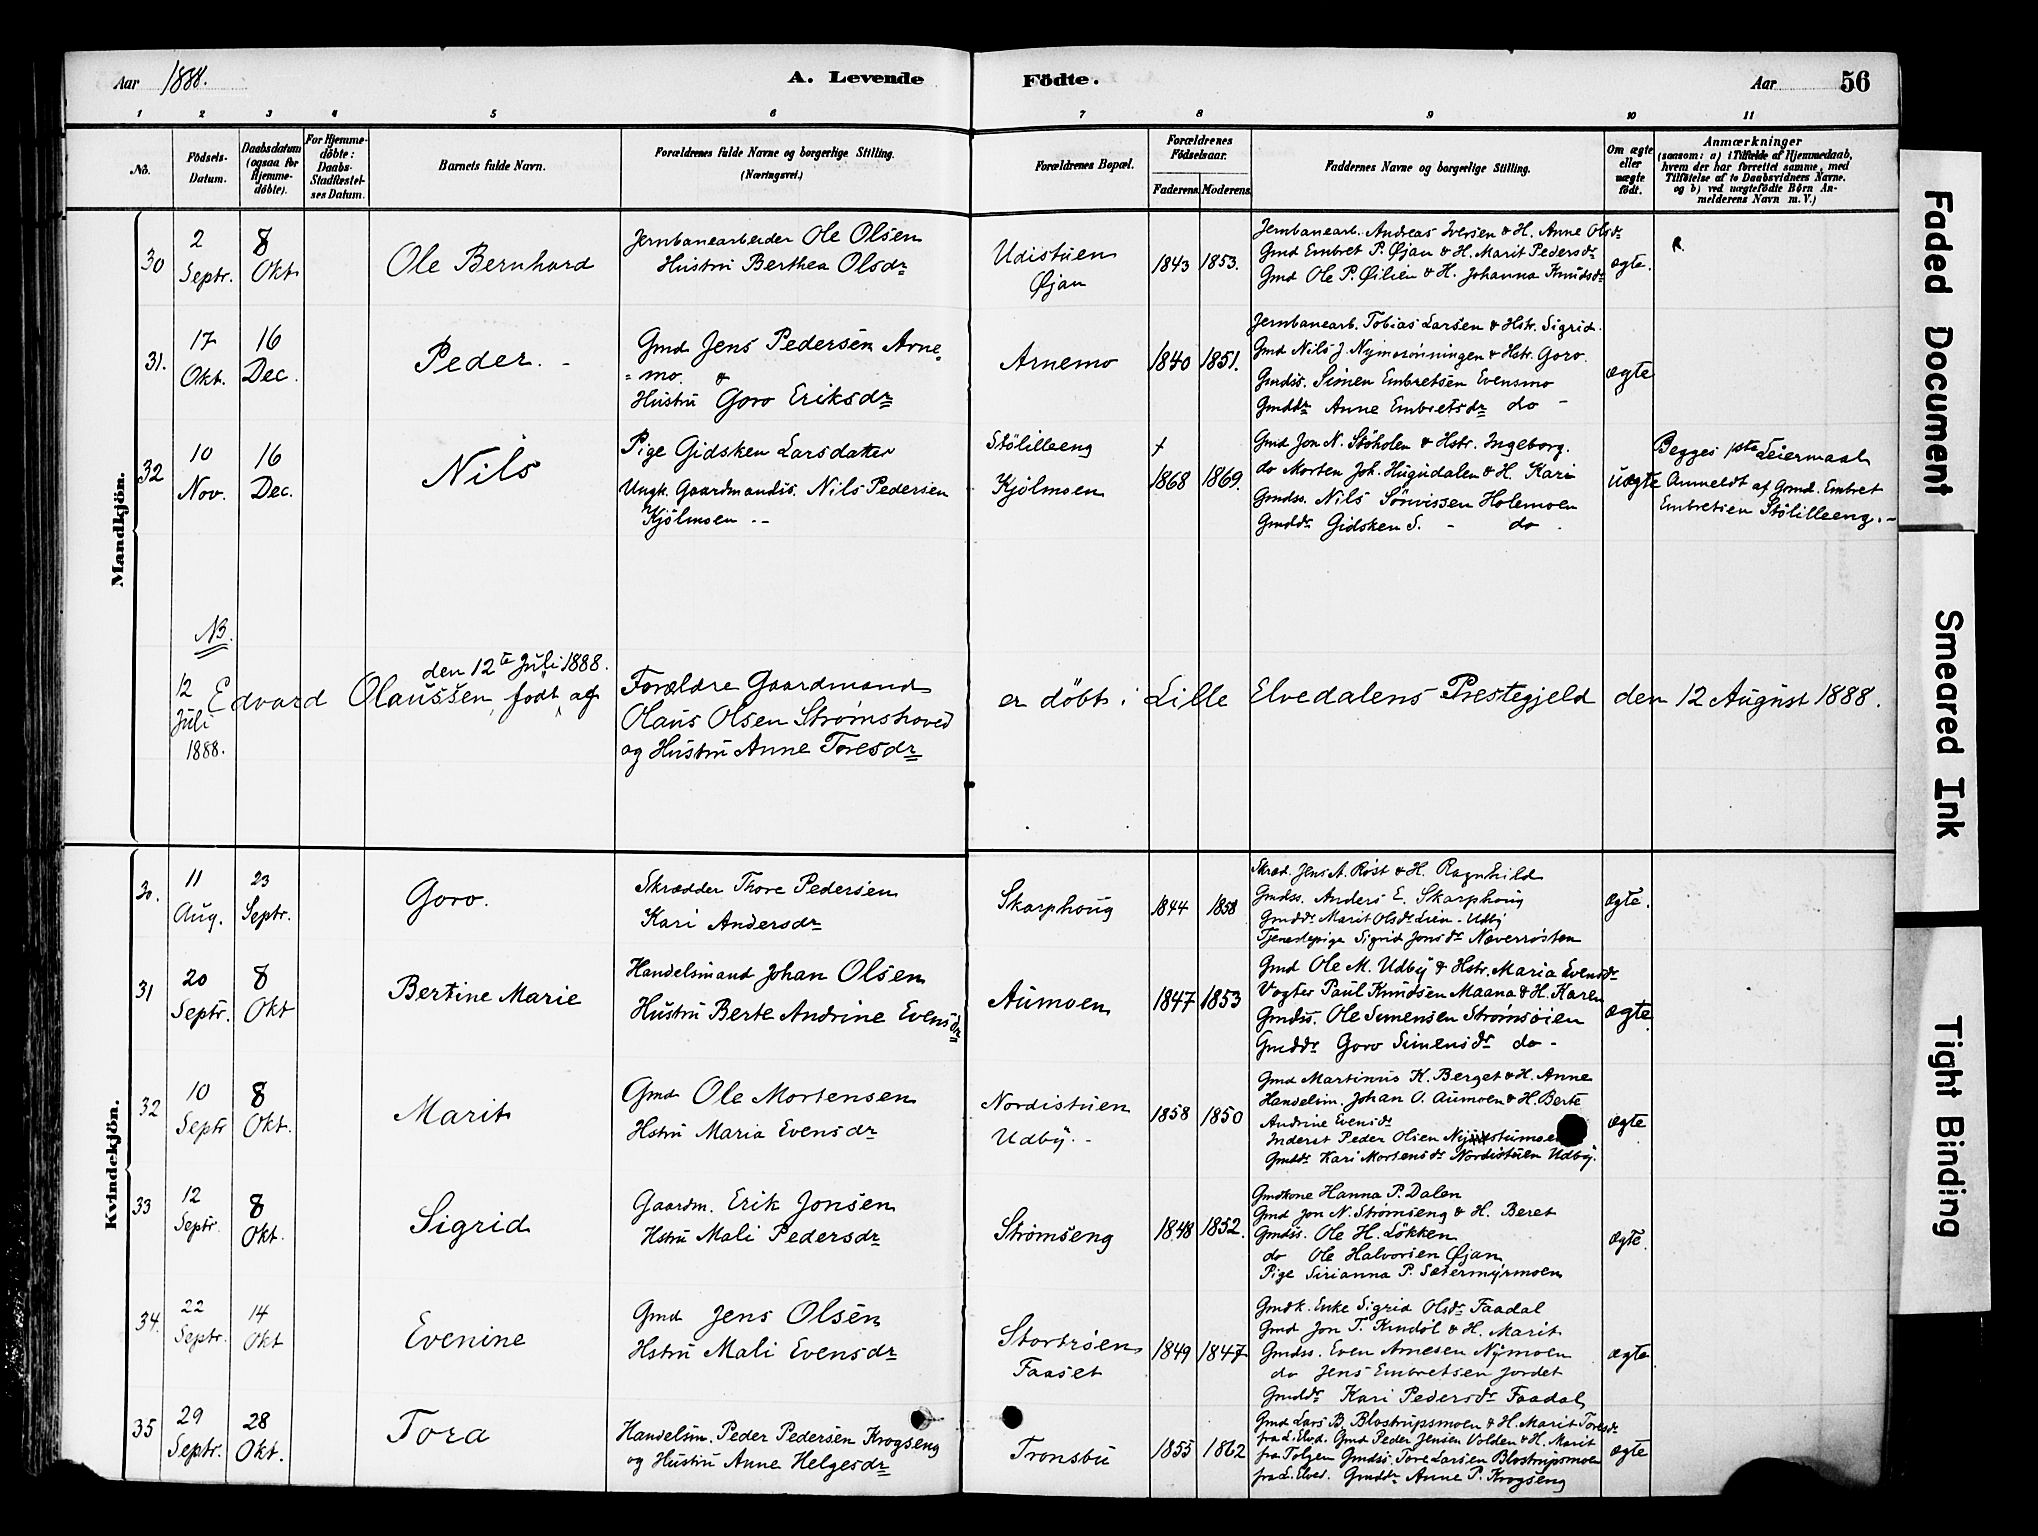 Aar 1888.
A. Levende Födte.
Aar 56
1 2 3 4 5 6 7 8 9 10 11
No.
Födsels-Datum.
Daabsdatum (ogsaa for Hjemme-döbte).
For Hjemme-döbte: Daabs-Stadfæstel-ses Datum.
Barnets fulde Navn.
Forældrenes fulde Navne og borgerlige Stilling.
(Næringsvei.)
Forældrenes Bopæl.
Forældrenes Födselsaar.
Faderens. Moderens.
Faddernes Navne og borgerlige Stilling.
Om ægte eller uægte födt.
Anmærkninger
(saasom: a) i Tilfælde af Hjemmedaab,
hvem der har forrettet samme, med
Tilföielse af to Daabsvidners Navne.
og b) ved uægtefödte Börn An-
melderens Navn m. V.)
Mandkjön.
30
2 Septr.
8 Okt
Ole Bernhard
Jernbanearbeider Ole Olsen
Hustru Berthea Olsdr
Udistuen
Øjan
1843 1853.
Jernbanearb. Andreas Iversen & H. Anne Olsdr
Gmd Embret P. Øjan & H. Marit Pedersdr
Gmd Ole P. Øilien & H. Johanna Knudsdr
ægte.
R.
31.
17 Okt.
16 Dec.
Peder. -
Gmd Jens Pedersen Arne=
=mo. &
Hustru Goro Eriksdr
Arnemo
1840 1851.
Jernbanearb. Tobias Larsen & Hstr. Sigrid.
Gmd Nils J. Nymorönningen & Hstr. Goro.
Gmdss. Simen Embretsen Evensmo
Gmddr Anne Embretsdr do -
ægte
32
10 Nov.
16 Dec.
Nils
Pige Gidsken Larsdatter
Ungk. Gaardmandss. Nils Pedersen
Kjölmoen --
Stölilleeng
Kjölmoen
+
1868 1869.
Gmd Jon N. Stöholen & Hstr. Ingeborg.
do Morten Joh. Hugudalen & H. Kari
Gmdss. Nils Sörvissen Holemoen
Gmddr Gidsken S. - do.
uægte
Begges 1ste Leiermaal
Anmeldt af Gmd. Embret
Embretsen Stölilleeng. -
NB.
12 Juli 1888.
den 12te Juli 1888.
Edvard Olaussen, født af
Forældre Gaardmand
Olaus Olsen Strömshoved
og Hustru Anne Toresdr
er döbt i Lille Elvedalens Prestegjeld den 12 August 1888.
Kvindekjön.
30.
11 Aug.
23 Septr.
Goro.
Skrædder Thore Pedersen
Kari Andersdr
Skarphoug
1844 1858
Skræd. Jens A. Röst & H. Ragnhild
Gmdss. Anders E. Skarphoug
Gmddr Marit Olsdr Lien - Udby
Tjenestepige Sigrid Jonsdr Naverrösten
ægte.
31
20 Septr.
8 Okt
Bertine Marie
Handelsmand Johan Olsen
Hustru Berte Andrine Evensdr
Aumoen
1847 1853
Gmd Ole M. Udby & Hstr. Maria Evensdr
Vogter Paul Knudsen Maana & H. Karen
Gmdss. Ole Simensen Strömsöien
Gmddr Goro Simensdr do -
ægte
32
10 Septr
8 Okt.
Marit
Gmd Ole Mortensen
Hstru Maria Evensdr
Nordistuen
Udby. -
1858 1850
Gmd Martinus K. Berget & H. Anne
Handelsm. Johan O. Aumoen & H. Berte
Andrine Evensdr
Inderst Peder Olsen
Gmddr Kari Mortensdr Nordistuen Udby.
ægte
33
12 Septr.
8 Okt.
Sigrid
Gaardm. Erik Jonsen
Hstru Mali Pedersdr
Strömseng
1848 1852.
Gmdkone Hanna P. Dalen
Gmd Jon N. Strömseng & H. Beret
Gmdss. Ole H. Lökken
do Ole Halvorsen Øjan
Pige Sirianna P. Sætermyrmoen
ægte.
34.
22 Septr.
14 Okt
Evenine
Gmd Jens Olsen
Hstru Mali Evensdr
Stortröen
Faaset
1849 1847
Gmdk. Enke Sigrid Olsdr Faadal
Gmd Jon T. Krudöl & H. Marit
Gmdss. Even Arnesen Nymoen
do Jens Embretsen Jordet
Gmddr Kari Pedersdr Faadal
ægte
35
29 Septr.
28 Okt.
Tora
Handelsm. Peder Pedersen Krogseng
og Hustru Anne Helgesdr
Tronsbu
1855 1862
Gmd Lars B. Blostrupsmoen & H. Marit Toresdr
fra L. Elvd. Gmd Peder Jensen Volden & H. Marit
fra Tolgen Gmdss. Tore Larsen Blostrupsmoen
fra L. Elved. Gmddr Anne P. Krogseng
ægte
Faded Document
Smeared Ink
Tight Binding